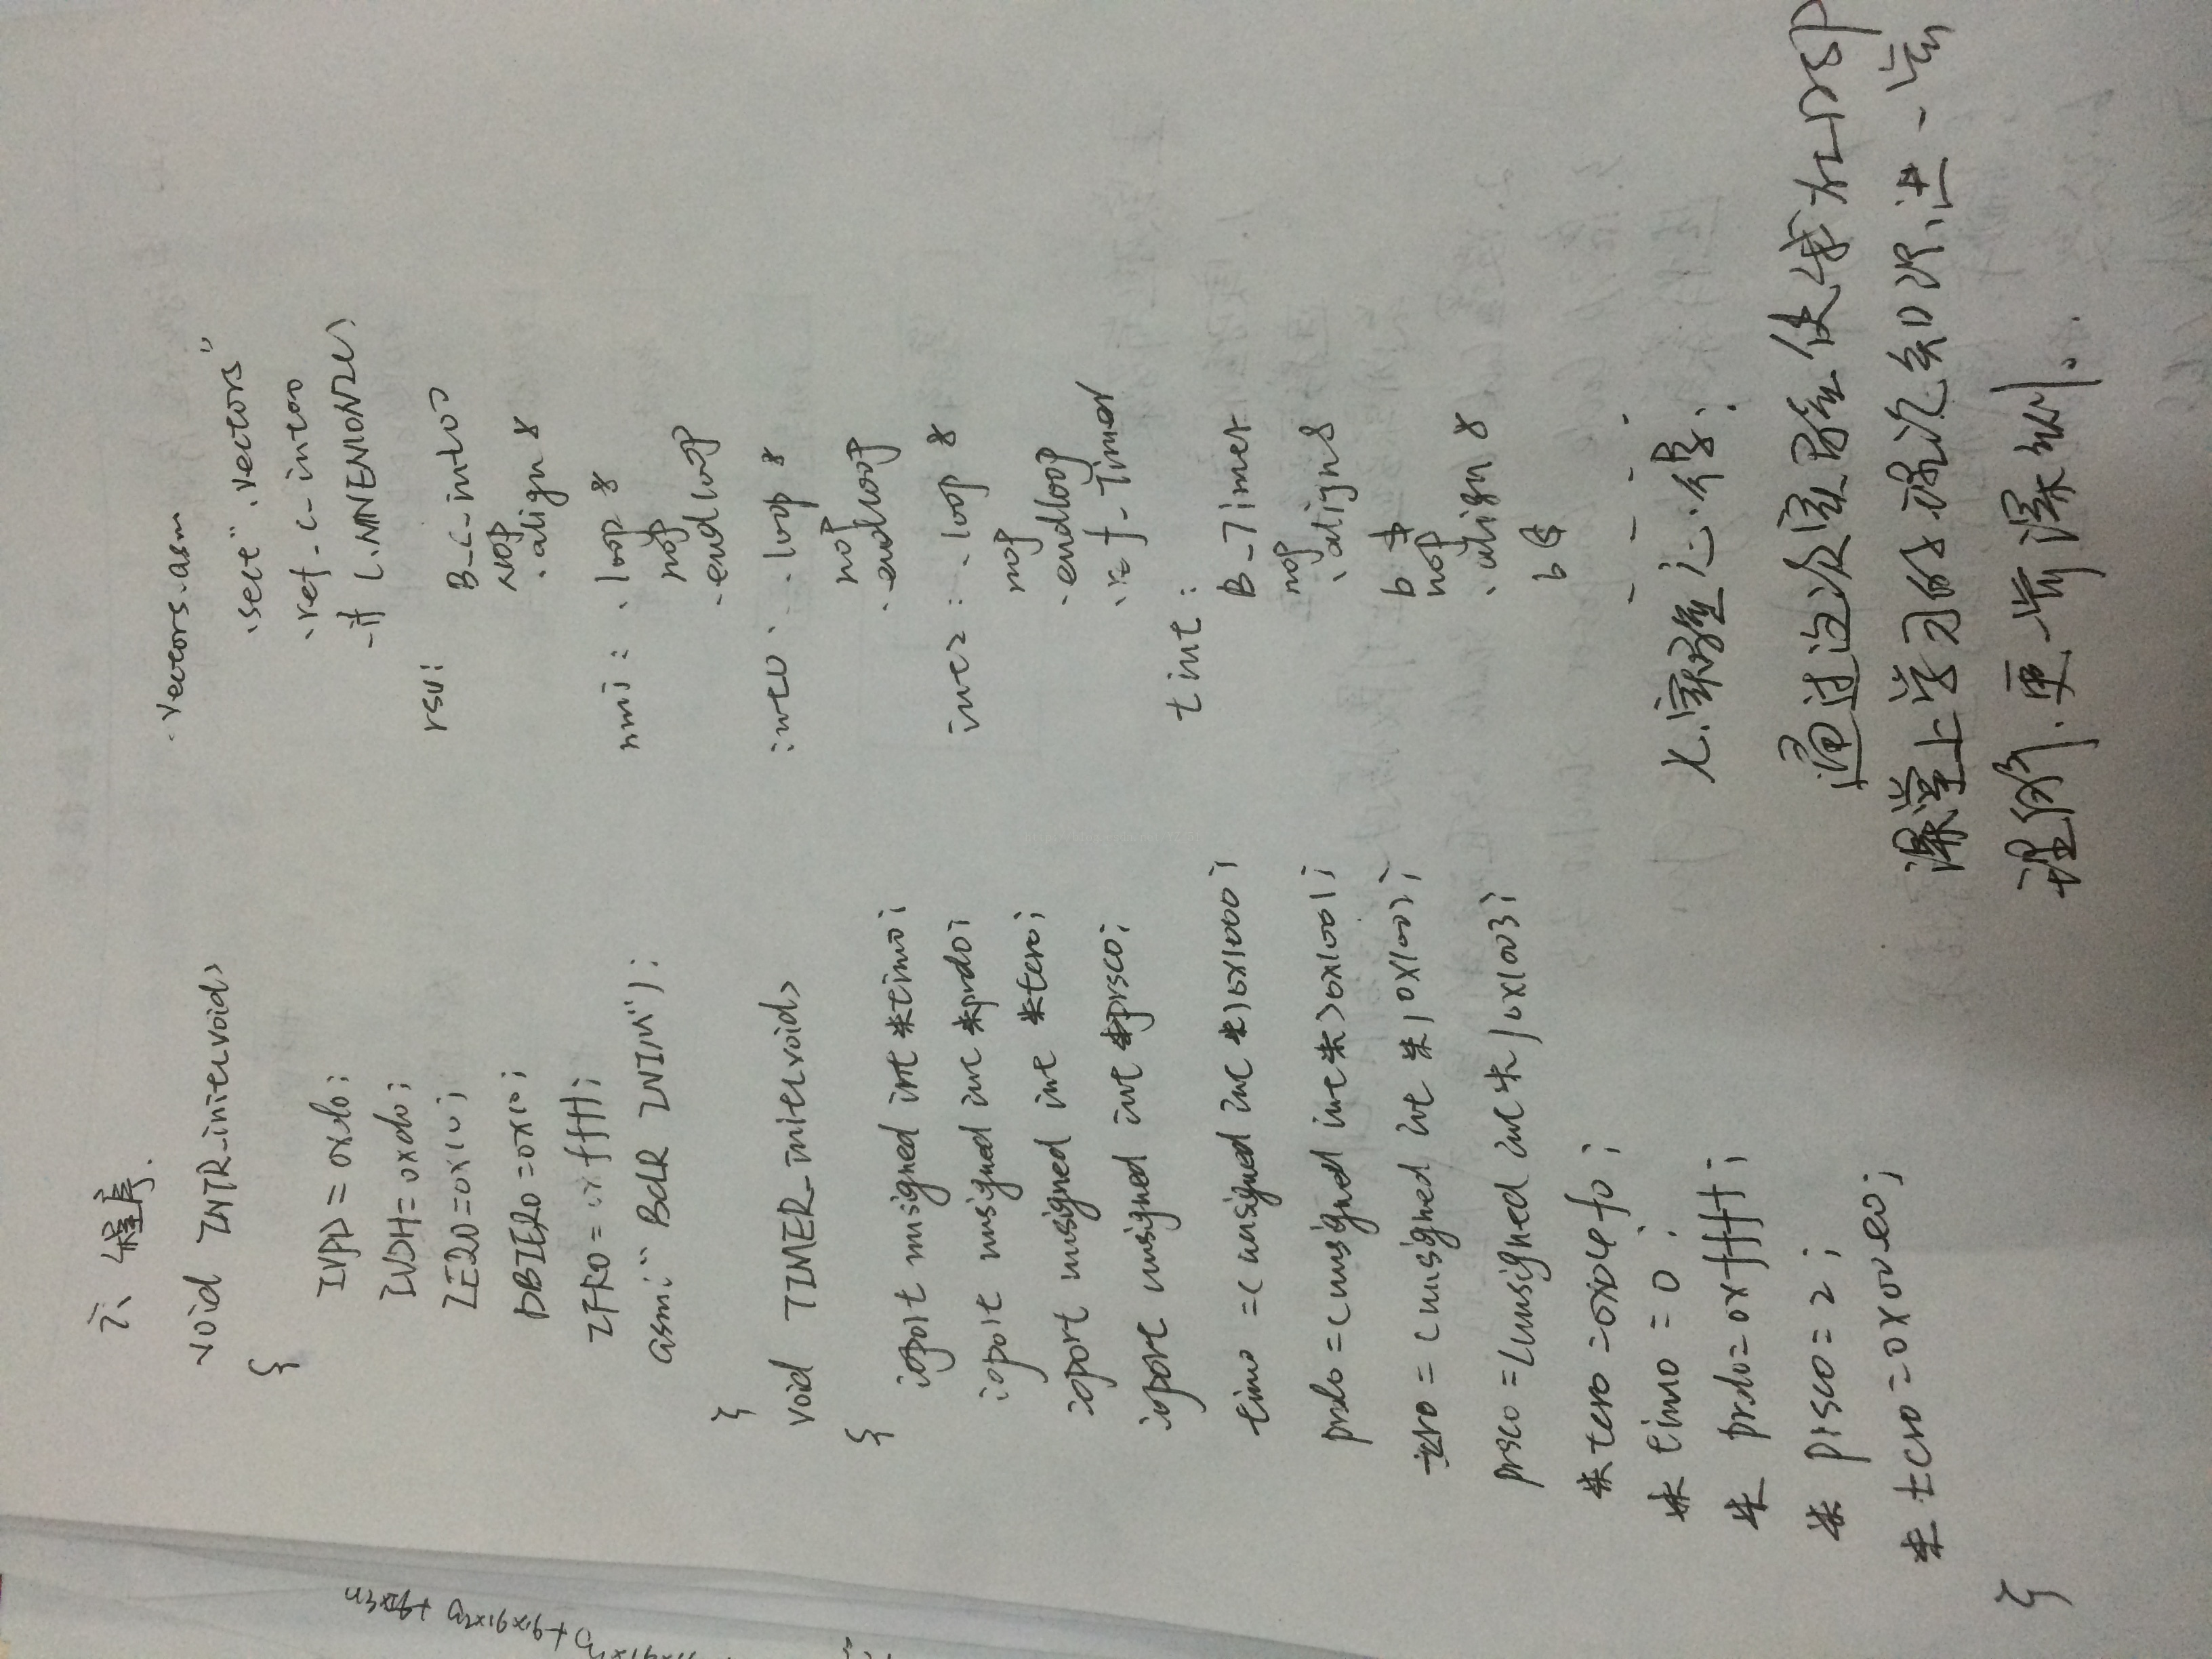 六、程序.
void INTR_init(void)
{
IVPD = 0xd0;
IVDH = 0xd0;
IE20 = 0x10;
DBIER0 = 0x10;
IFR0 = 0xffff;
asm(" BCLR INTM");
}
void TIMER_init(void)
{
ioport unsigned int *tim0;
ioport unsigned int *prd0;
ioport unsigned int *tcr0;
ioport unsigned int *prsc0;
tim0 = (unsigned int *)0x1000;
prd0 = (unsigned int *)0x1001;
tcr0 = (unsigned int *)0x1002;
prsc0 = (unsigned int *)0x1003;
*tcr0 = 0x04f0;
*tim0 = 0;
*prd0 = 0xffff;
*prsc0 = 2;
*tcr0 = 0x00e0;
}
vectors.asm
.sect ".vectors"
.ref _c_int00
.if (.MNEMONIC)
rsv:
B _c_int00
NOP
.align 8
nmi: .loop 8
nop
.endloop
int0: .loop 8
nop
.endloop
int2: .loop 8
nop
.endloop
.ref _Timer
tint:
B _Timer
nop
.align 8
b $
nop
.align 8
b $
七、实验心得:
通过这次实验使我对DSP
课堂上学习的概念知识进一步
理解.更加深刻。